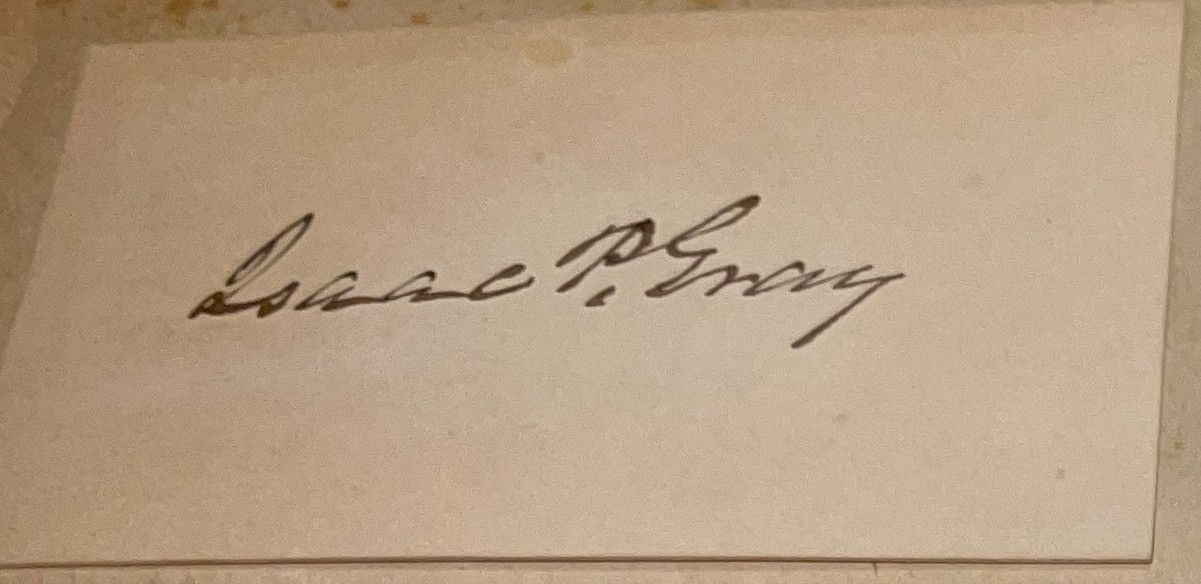 Isaac P. Gray